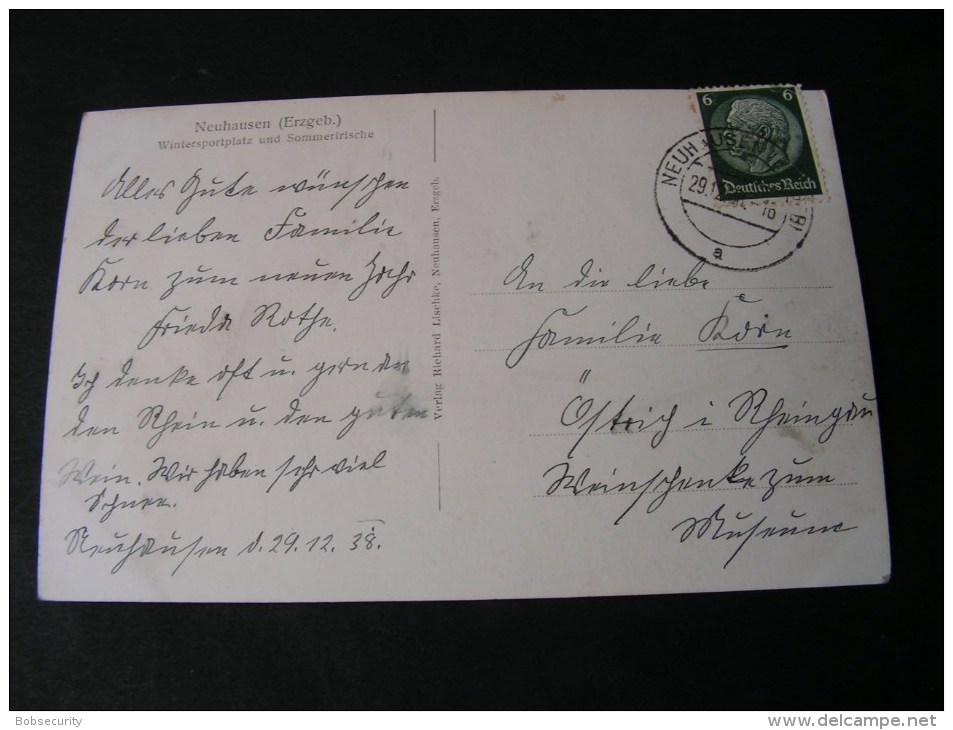 Neuhausen (Erzgeb.)
Wintersportplatz und Sommerfrische
Alles Gute wünschen
der lieben Familie
Korn zum neuen Jahr
Frieda Rothe.
Ich denke oft u. gern an
den Rhein u. den guten
Wein. Wir haben sehr viel
Schnee.
Neuhausen d. 29.12.38.
Verlag Richard Lischke, Neuhausen, Erzgeb.
6 6
Deutsches Reich
NEUHAUSEN
29.1
16
a
An die liebe
Familie Korn
Östrich i Rheingau
Weinschenke zum
Museum
Bobsecurity
www.delcampe.net